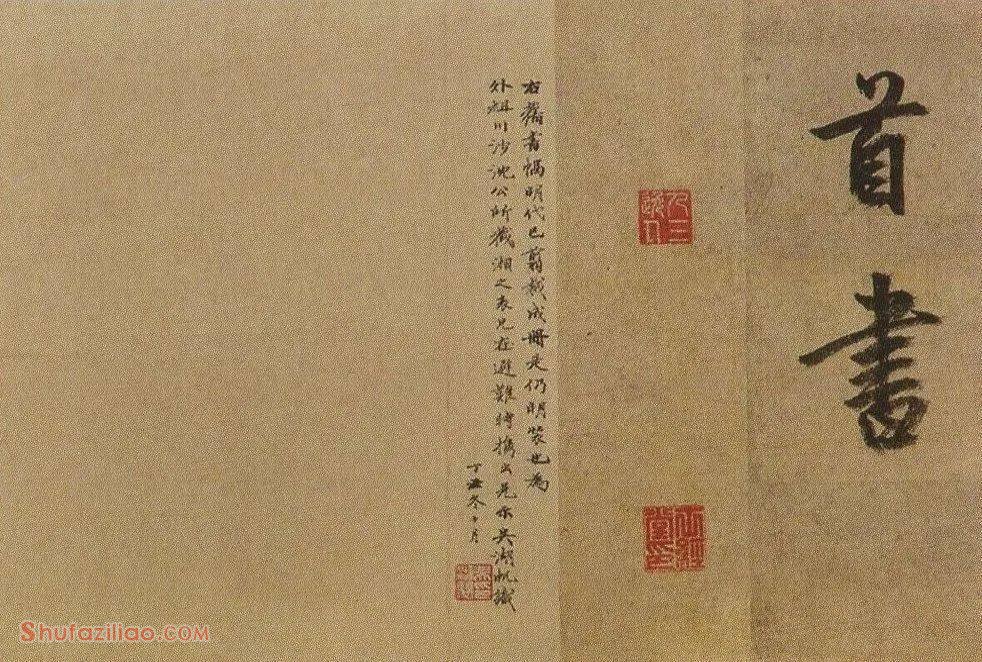 首書
右舊書福明代已翦裁成冊是仍明裝也為
外祖川沙沈公所藏湖之表兄在避難時攜出見示吳湖帆識
丁丑冬十月
Shufaziliao.COM